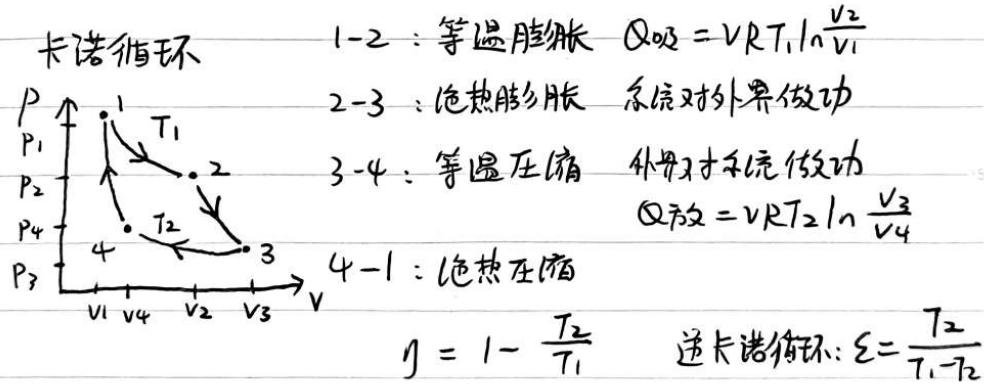 卡诺循环
P
P₁
P₂
P₄
P₃
1
T₁
2
T₂
4
3
V1 V4 V2 V3 V
1-2：等温膨胀 Q吸 = νRT₁ln V2/V1
2-3：绝热膨胀 系统对外界做功
3-4：等温压缩 外界对系统做功
Q放 = νRT₂ln V3/V4
4-1：绝热压缩
η = 1 - T₂/T₁ 逆卡诺循环：ε = T₂/T₁-T₂